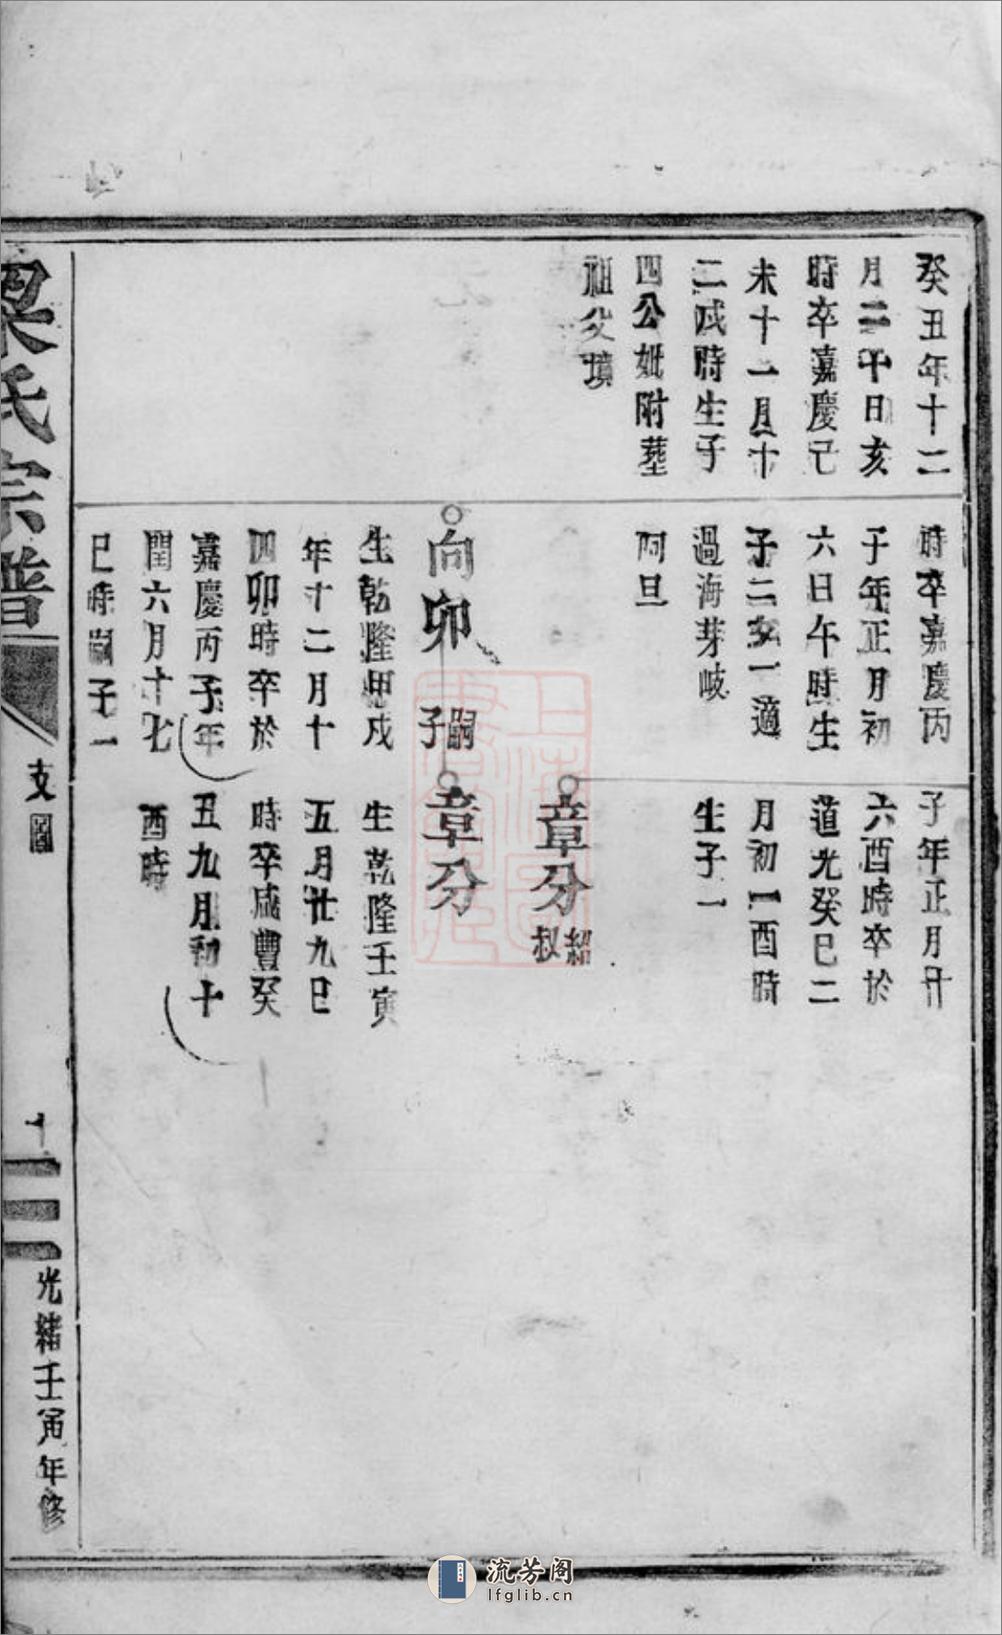 癸丑年十二
月二十日亥
時卒嘉慶己
未十一月十
二戌時生子
四公妣附塟
祖父墳
時卒嘉慶丙
子年正月初
六日午時生
子二女一適
過海芽岐
阿旦
向卯
嗣子
生乾隆甲戌
年十二月十
四卯時卒於
嘉慶丙子年
閏六月十七
巳時嗣子一
子年正月廿
六酉時卒於
道光癸巳二
月初一酉時
生子一
章分
紹叔
章分
生乾隆壬寅
五月廿九巳
時卒咸豐癸
丑九月初十
酉時
梁氏宗譜
支圖
光緒壬寅年修
流芳阁
lfglib.cn